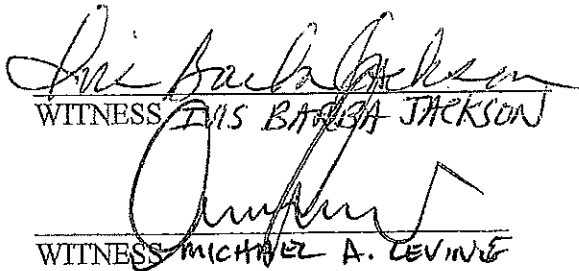 Iris Barba Jackson
WITNESS IRIS BARBA JACKSON
WITNESS MICHAEL A. LEVINE